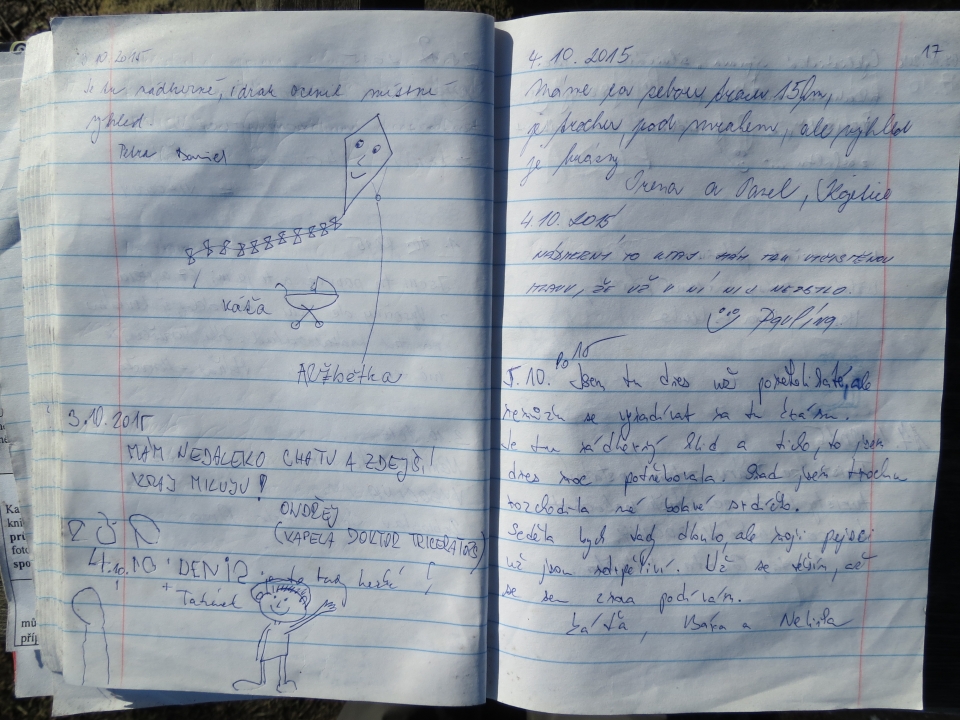 10.2015
Je tu nádherně, i drak ocenil místní
výhled.
Petra Daniel
Káťa
Alžbětka
3.10.2015
MÁM NEDALEKO CHATU A ZDEJŠÍ
KRAJ MILUJU!
ONDŘEJ
(KAPELA DOKTOR TRICERATOPS)
4.10. DENIS je to tad heské!
+ Tatínek
17
4.10.2015
Máme za sebou prvních 15km,
je trochu pod mrakem, ale výhled
je krásný
Irena a Pavel,
4.10.2015
NÁDHERNÝ TO VÝŠLAP. MÁM TAK VYČIŠTĚNOU
HLAVU, ŽE UŽ V NÍ NIC NEZBYLO.
Pavlína
5.10. Po 15 Jsem tu dnes už poněkolikáté, ale
nemůžu se vynadívat na tu krásu.
Je tu nádherný klid a ticho, to jsem
dnes moc potřebovala. Snad jsem trochu
rozchodila mé bolavé srdíčko.
Seděla bych tady dlouho, ale moji pejsci
už jsou netrpěliví. Už se těším, až
se sem zase podívám.
Káťa, Bára a Nelinka
Ka
kni
prů
foto
spo
mů
příp